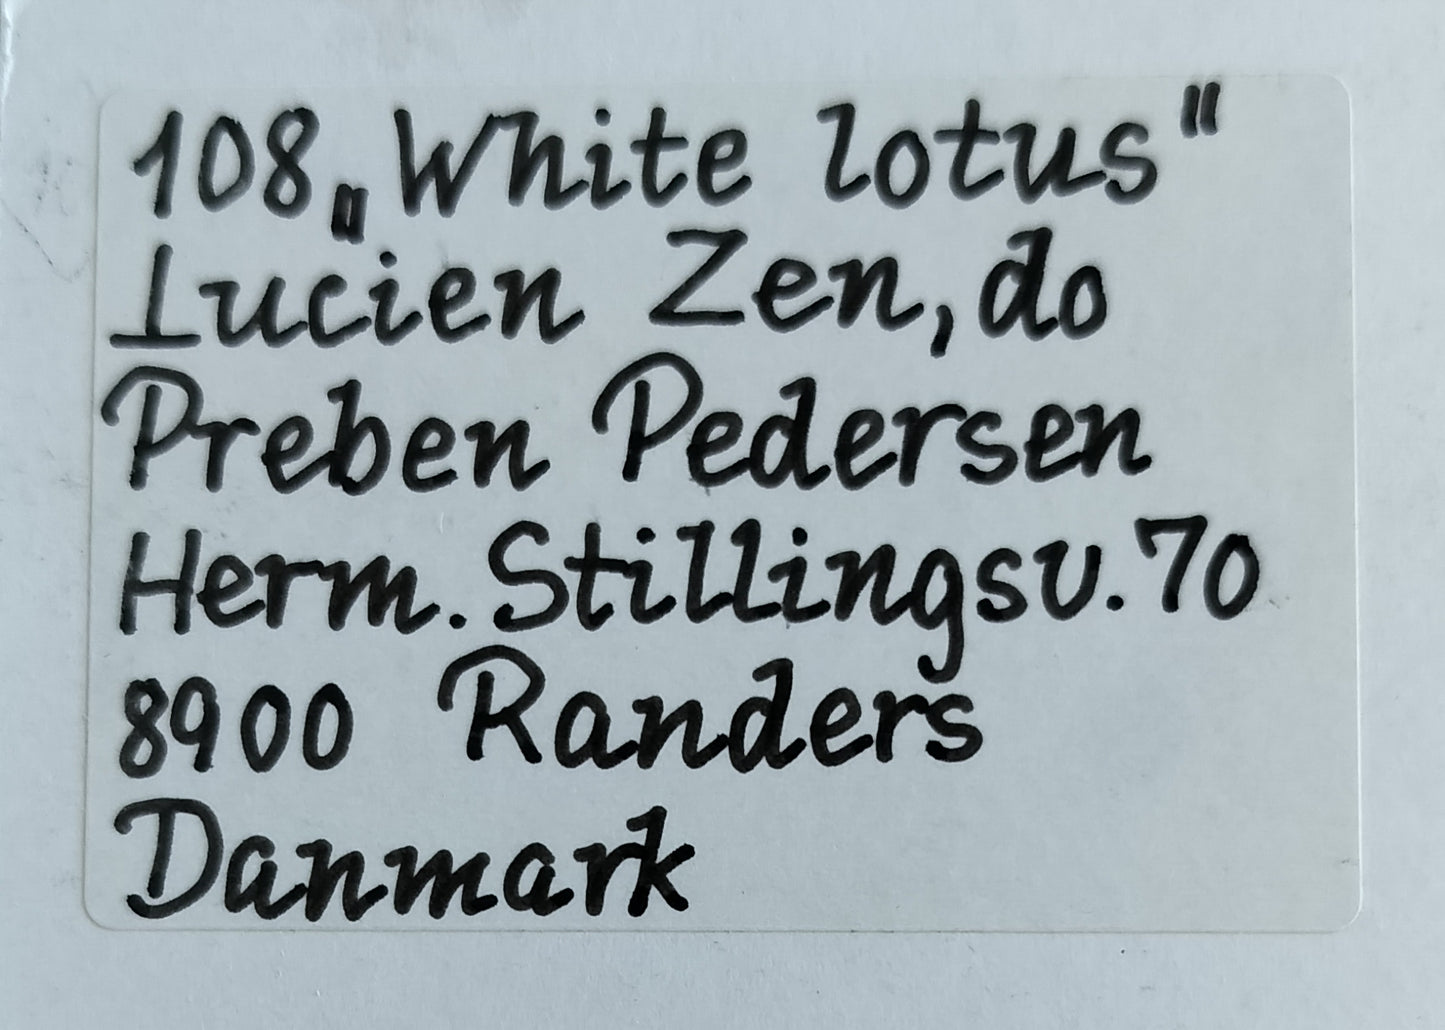 108 „White lotus"
Lucien Zen, do
Preben Pedersen
Herm. Stillingsv. 70
8900 Randers
Danmark